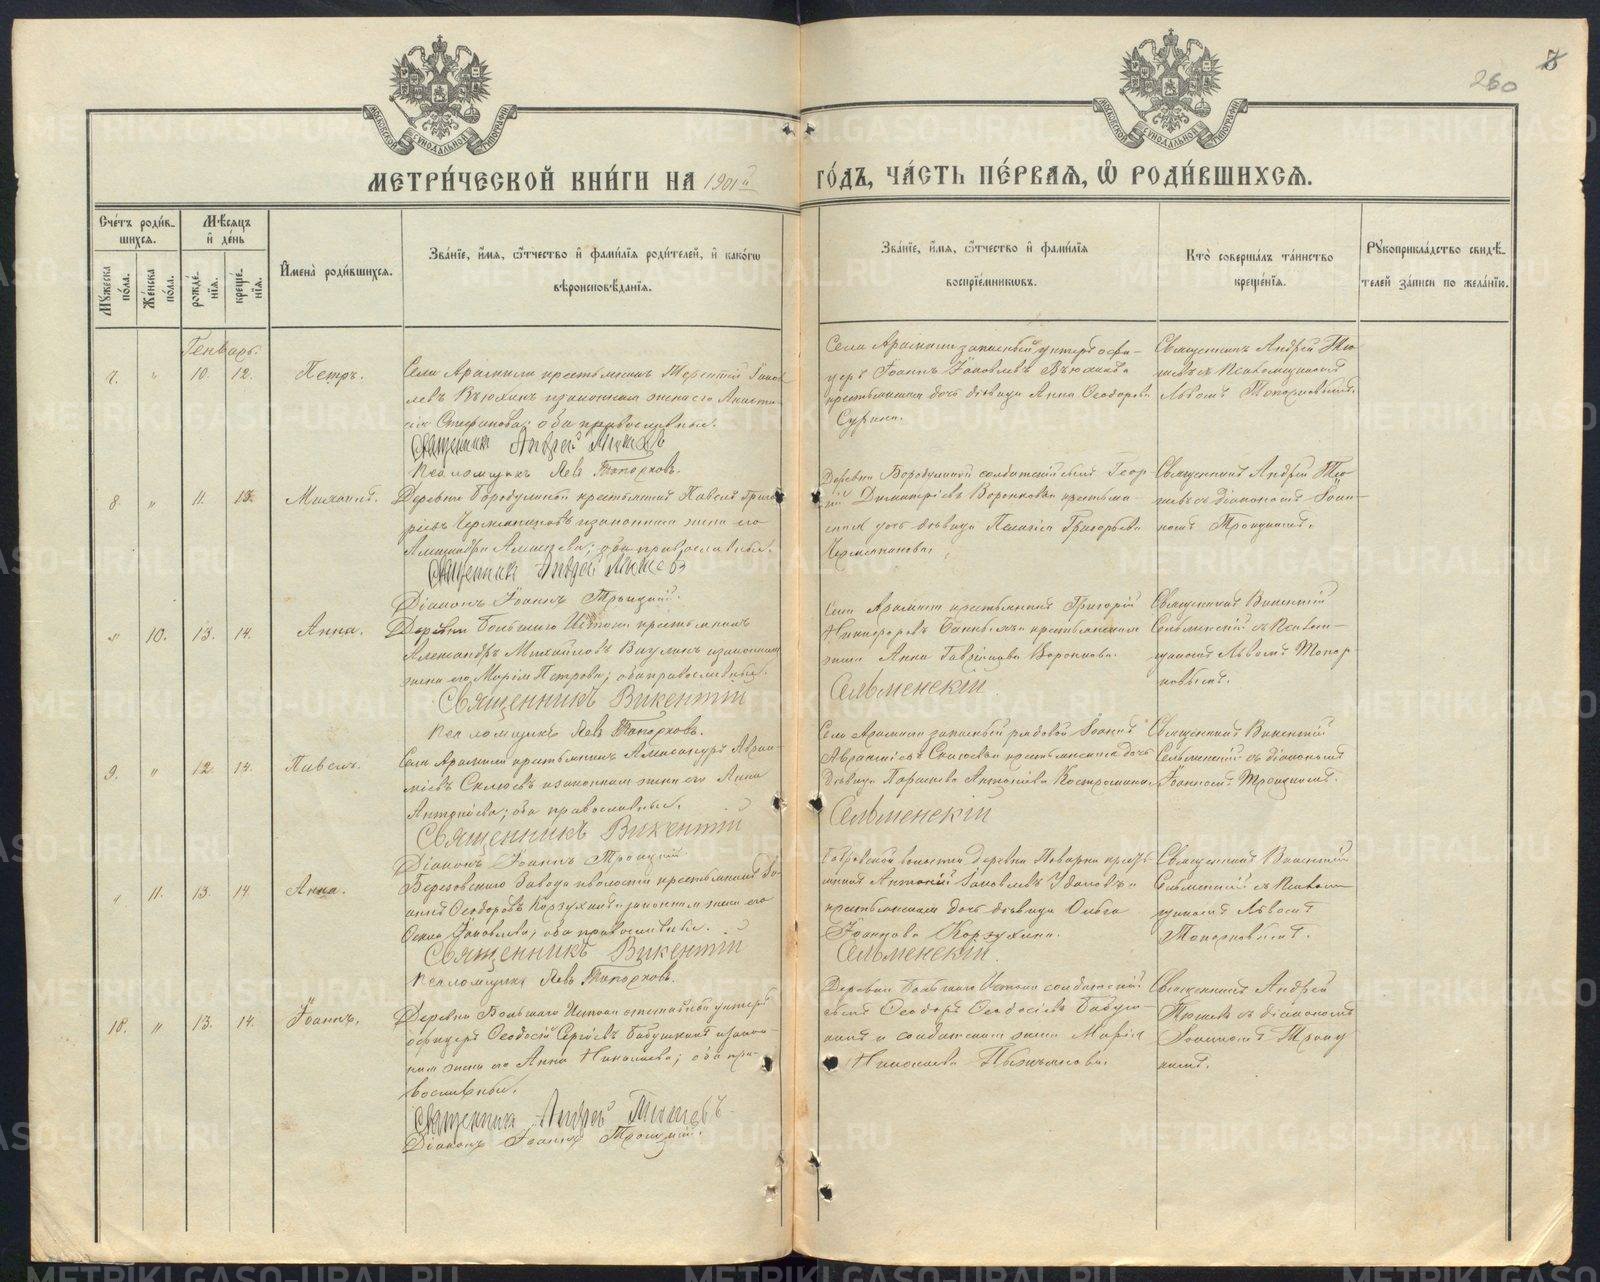 260
МОСКОВСКОЙ СУНОДАЛЬНОЙ ТИПОГРАФІИ
МОСКОВСКОЙ СУНОДАЛЬНОЙ ТИПОГРАФІИ
МЕТРИ́ЧЕСКОЙ КНИ́ГИ НА 1901й ГО́ДЪ, ЧА́СТЬ ПЕ́РВАѦ, Ѽ РОДИ́ВШИХСѦ.
Сче́тъ роди́в-
шихся.
Мѣсяцъ
и́ де́нь
Мꙋ́жеска по́ла.
Же́нска по́ла.
рожде́-
нїя.
креще́-
нїя.
И҆мена̀ роди́вшихся.
Зва́нїе, и҆́мя, ѻ҆́тчество и҆ фами́лїя роди́телей, и҆ како́гѡ
вѣроисповѣ́данїя.
Зва́нїе, и҆́мя, ѻ҆́тчество и҆ фами́лїя
воспрїе́мникѡвъ.
Кто̀ соверша́лъ та́инство
креще́нїя.
Рꙋкоприкла́дство свидѣ́-
телей за́писи по жела́нїю.
Генварь.
7. " 10. 12. Петръ.
Села Арамили крестьянинъ Терентий Іаков
левъ Вьюхинъ и законная жена его Анаста
сія Стефанова; оба православные.
Священникъ Андрей
Псаломщикъ Левъ Топорковъ.
Села Арамили запасный унтеръ офи-
церъ Іоаннъ Іаковлевъ Вьюхинъ и
крестьянская дочь дѣвица Анна Ѳеодорова
Священникъ Андрей
съ Псаломщикомъ
Львомъ Топорковымъ.
8. " 11. 13. Михаилъ.
Деревни Бородулиной крестьянинъ Павелъ Григо
рьевъ и законная жена его
Александра Алексѣева; оба православные.
Священникъ Андрей
Діаконъ Іоаннъ Троицкій.
Деревни Бородулиной солдатскій сынъ Геор-
гій Димитріевъ Воронковъ и крестьян-
ская дочь дѣвица Пелагія Григорьева
Священникъ Андрей
съ діакономъ Іоан-
номъ Троицкимъ.
" 10. 13. 14. Анна.
Деревни Большаго Истока крестьянинъ
Александръ Михайловъ Ваулинъ и законная
жена его Марія Петрова; оба православные.
Священникъ Викентій
Псаломщикъ Левъ Топорковъ.
Села Арамили крестьянинъ Григорій
Никифоровъ и крестьянская
жена Анна Гаврилова Воронкова.
Сельменскій
Священникъ Викентій
Сельменскій съ Псалом-
щикомъ Львомъ Топор-
ковымъ.
9. " 12. 14. Павелъ.
Села Арамили крестьянинъ Александръ Аврам-
міевъ и законная жена его Анна
Антоніева; оба православные.
Священникъ Викентій
Діаконъ Іоаннъ Троицкій
Села Арамили запасный рядовой Іоаннъ
Аврамміевъ и крестьянская дочь
дѣвица Параскева Антоніева Костромина.
Сельменскій
Священникъ Викентій
Сельменскій съ діакономъ
Іоанномъ Троицкимъ.
" 11. 13. 14. Анна.
Березовскаго Завода и волости крестьянинъ Іо-
аннъ Ѳеодоровъ Корзухинъ и законная жена его
Іаковлева; оба православные.
Священникъ Викентій
Псаломщикъ Левъ Топорковъ.
волости деревни кресть-
янинъ Антоній Іаковлевъ и
крестьянская дочь дѣвица Ольга
Іоаннова Корзухина.
Сельменскій.
Священникъ Викентій
Сельменскій съ Псалом-
щикомъ Львомъ
Топорковымъ.
10. " 13. 14. Іоаннъ.
Деревни Большаго Истока отставной унтеръ
офицеръ Ѳеодосій Сергіевъ Бабушкинъ и закон-
ная жена его Анна Николаева; оба пра-
вославные.
Священникъ Андрей
Діаконъ Іоаннъ Троицкій.
Деревни Большаго Истока солдатскій
сынъ Ѳеодоръ Ѳеодосіевъ Бабуш-
кинъ и солдатская жена Марія
Николаева
Священникъ Андрей
съ діакономъ
Іоанномъ Троиц-
кимъ.
METRIKI.GASO-URAL.RU